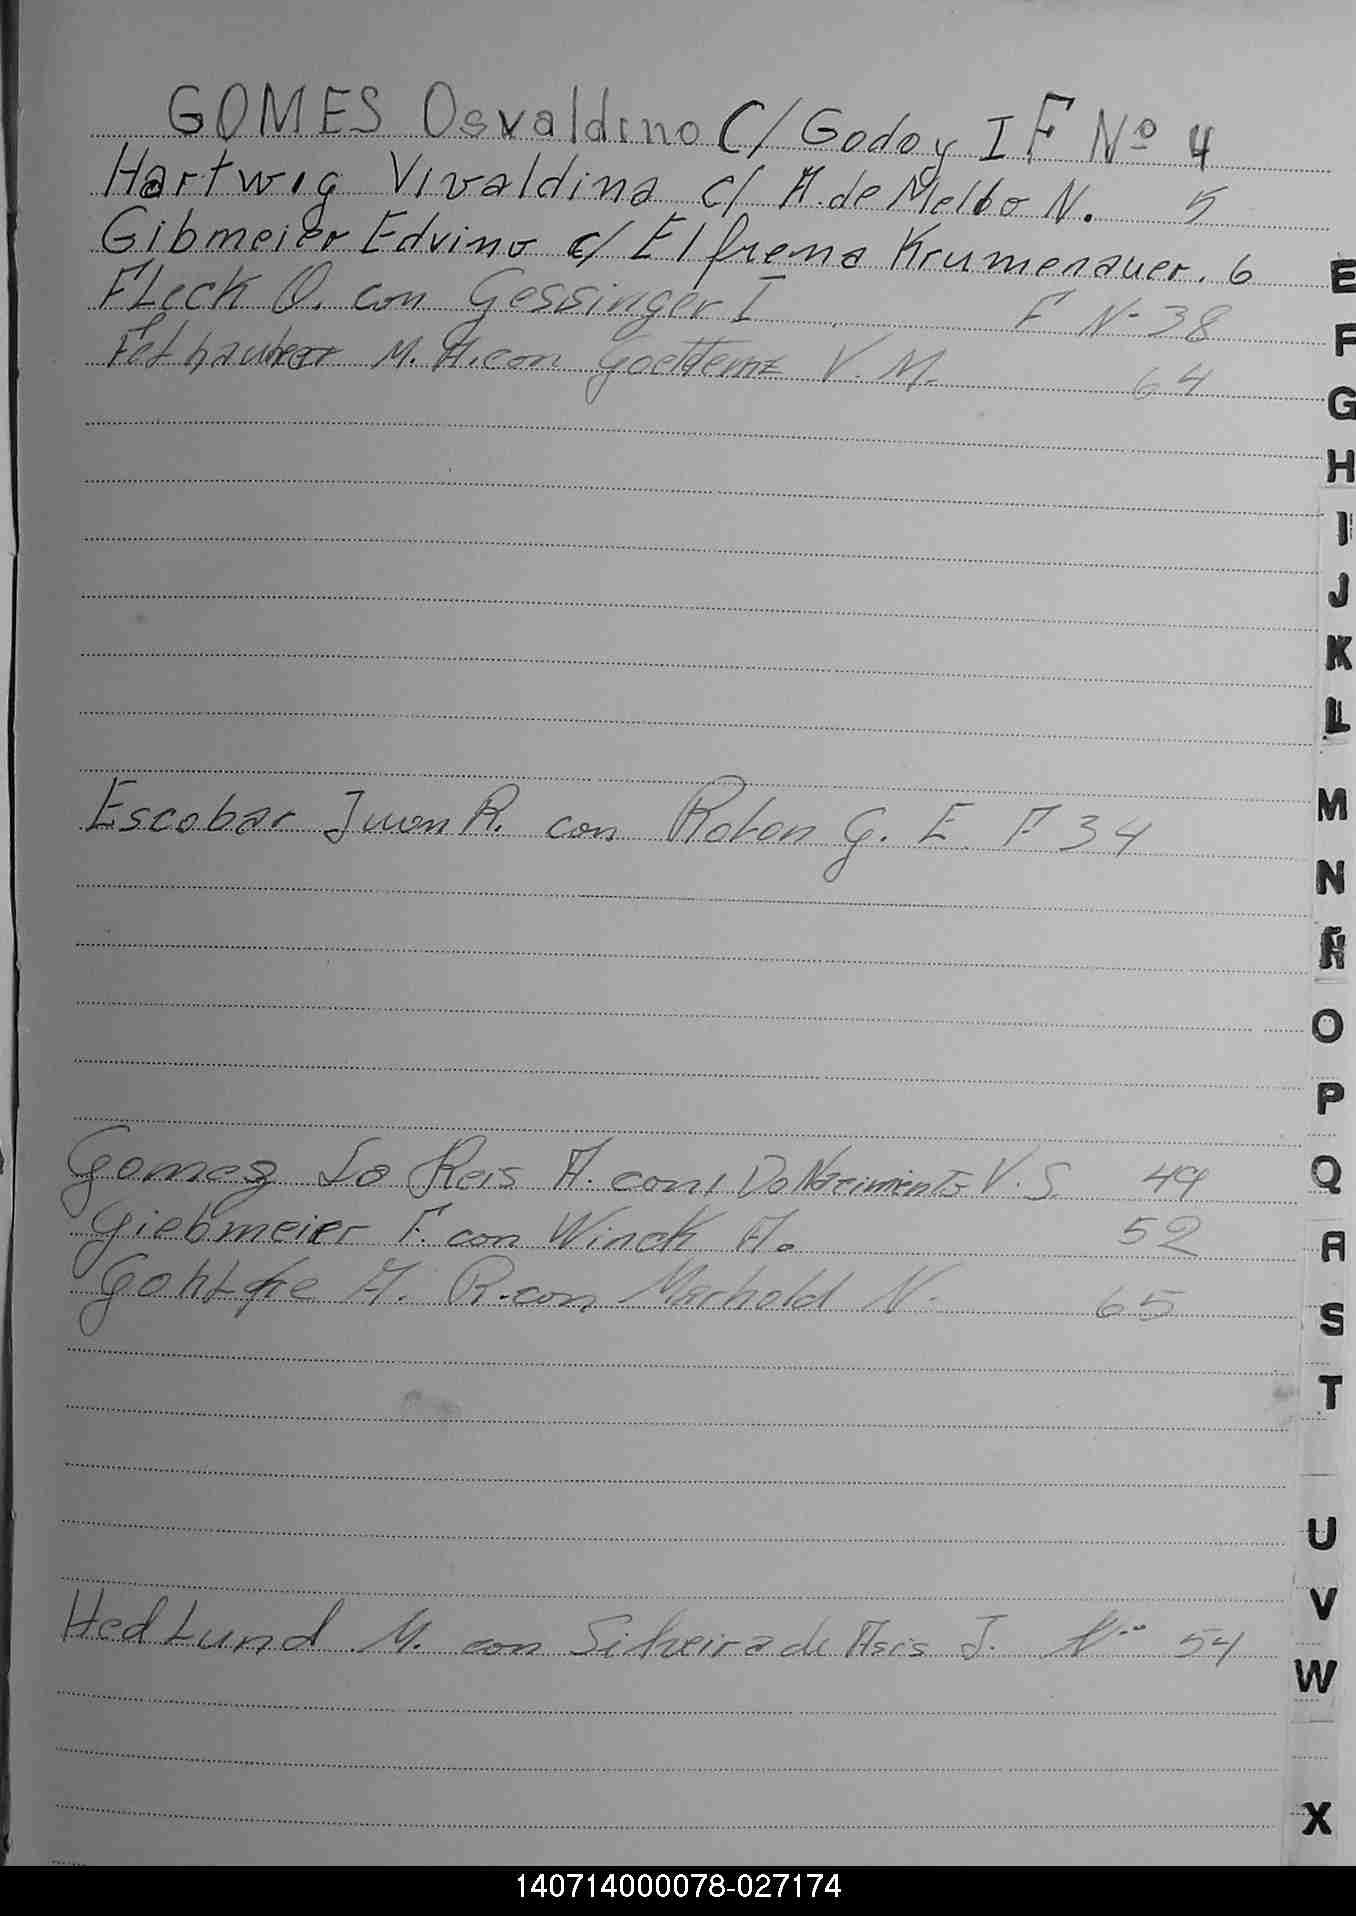 GOMES Osvaldino C/ Godoy I F Nº 4
Hartwig Vivaldina c/ A. de Mello N. 5
Gibmeier Edvino c/ Elfrema Krumenauer. 6
Fleck O. con Gessinger I F Nº 38
M. A. con V. M. 64
Escobar Juan R. con Rolon G. E. F 34
Gomez Do Reis A. con Do Nacimento V. S. 49
Giebmeier F. con Winck A. 52
A. R. con Marhold N. 65
Hedlund M. con de Asis J. Nº 54
E
F
G
H
I
J
K
L
M
N
Ñ
O
P
Q
R
S
T
U
V
W
X
140714000078-027174